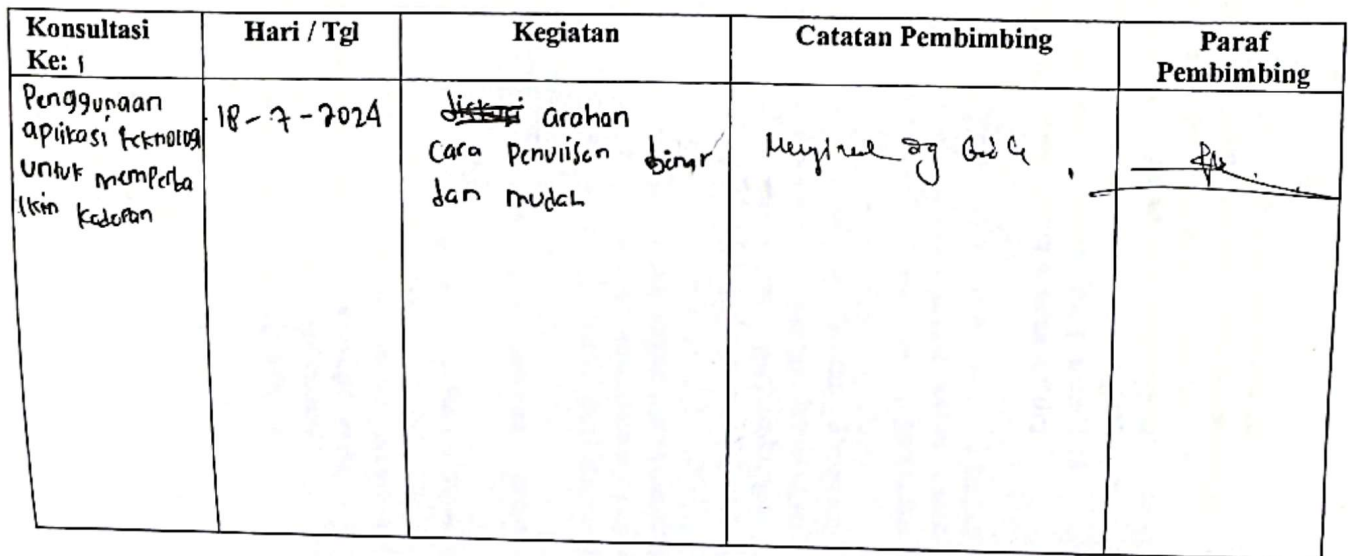 Konsultasi
Ke: 1
Hari / Tgl
Kegiatan
Catatan Pembimbing
Paraf
Pembimbing
Penggunaan
aplikasi teknologi
untuk memperba
ikin
18-7-2024
diskusi arahan
Cara Penulisan
dan mudah